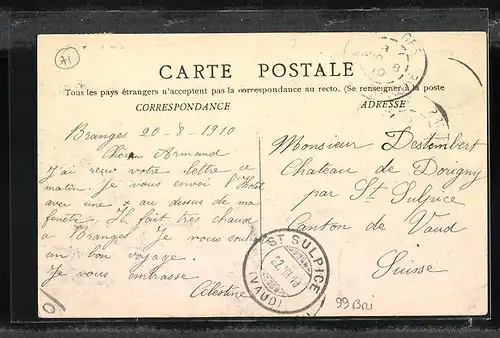 71
CARTE POSTALE
Tous les pays étrangers n'acceptent pas la correspondance au recto. (Se renseigner à la poste
CORRESPONDANCE
ADRESSE
Branges 20-8-1910
Armand
J'ai reçu votre lettre ce
matin. Je vous envoi l'
avec une x au dessus de ma
fenêtre. Il fait très chaud
a Branges. Je vous souhait
un bon voyage.
Je vous embrasse
Célestine
Monsieur Destombert
Chateau de Dorigny
par St Sulpice
Canton de Vaud
Suisse
ST SULPICE
22 VIII 10
(VAUD)
99 BRI